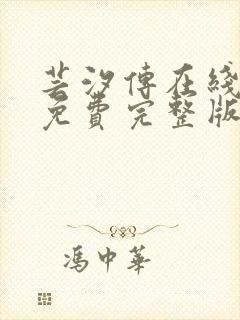 芸汐傅在綫
免費完整版
馮中華